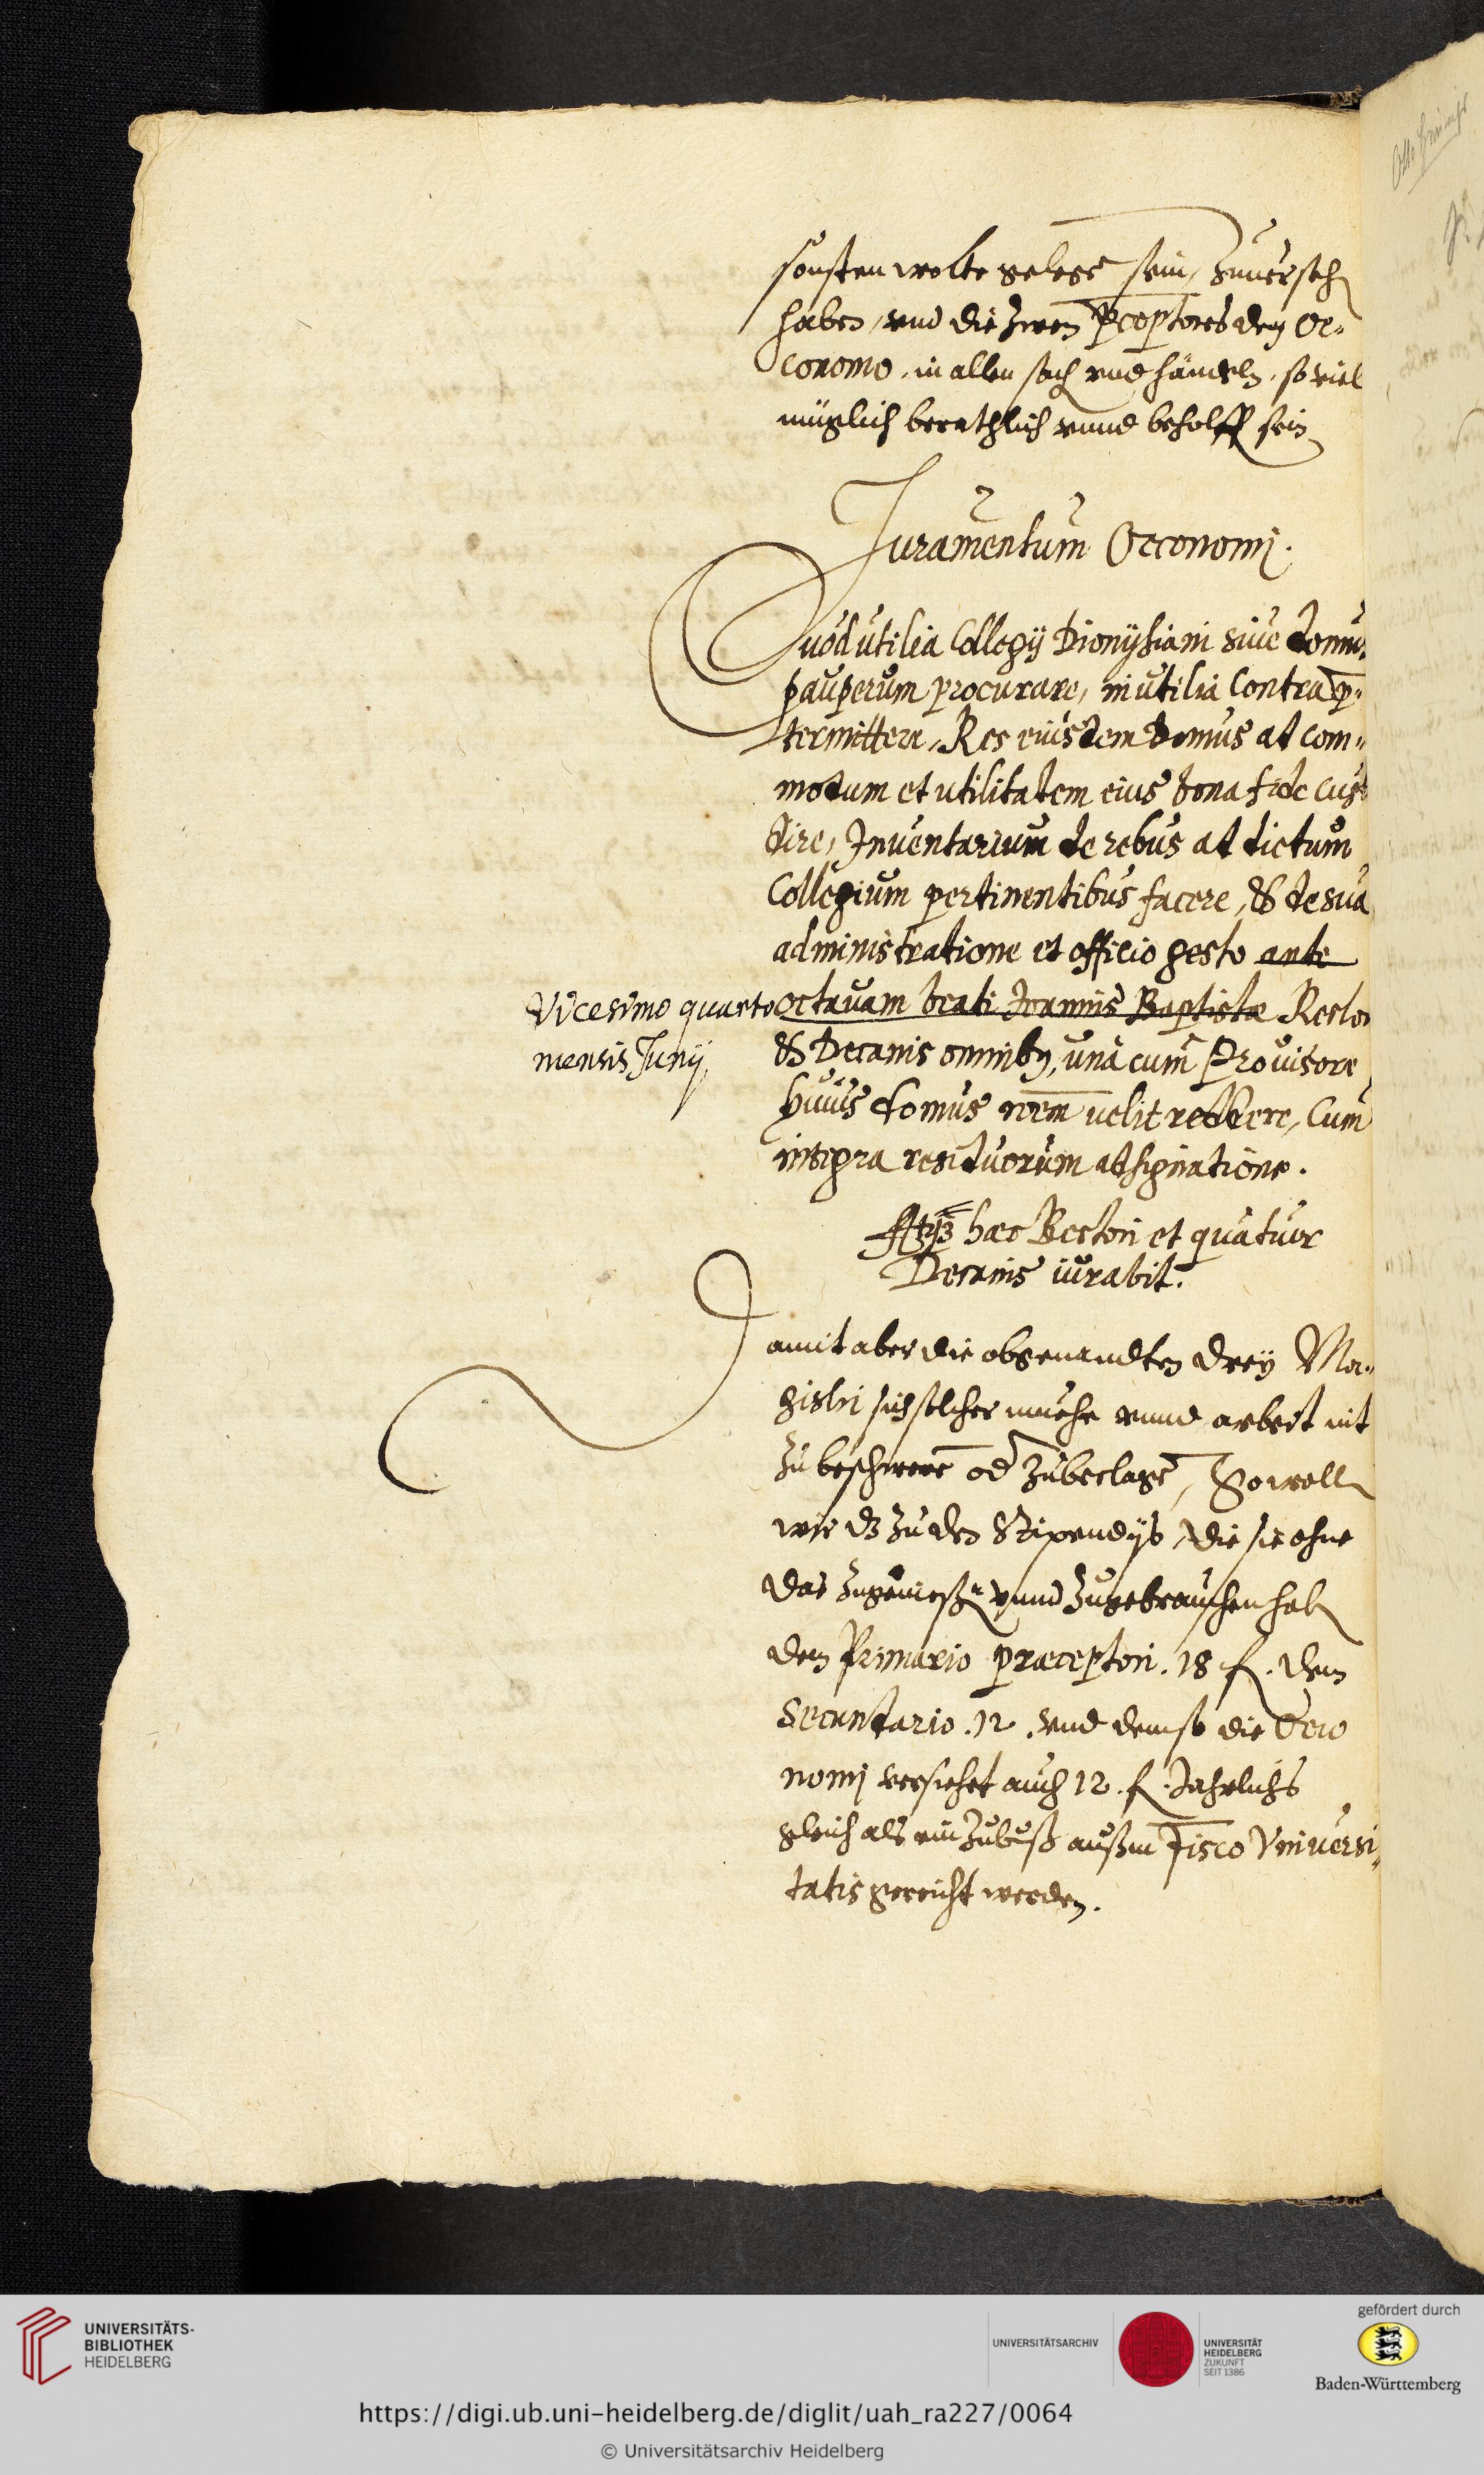 sonsten wolte gelege sein, zuuersehn
haben, vnd die zwen p̄ceptores dem Oe-
conomo, in allen sach vnd händeln, so viel
müglich berathlich vnnd beholff sein
Juramentum Oeconomj.
Quod utilia Collegij Dionysiani siue domus
pauperum procurare, inutilia contra p̄-
termittere, Res eiusdem domus ad com-
modum et utilitatem eius bona fide custo
dire, Inuentarium de rebus ad dictum
Collegium pertinentibus facere, & de sua
administratione et officio gesto ante
octauam beati Joannis Baptistæ Rectori
Vicesimo quarto
mensis Junij,
& Decanis omnibq, unà cum Prouisore
huius domus rōem uelit reddere, Cum
integra residuorum adsignatione.
hæc Rectori et quatuor
Decanis iurabit.
Damit aber die obgenandten drey Ma-
gistri sich solcher muehe vnnd arbeit nit
zu beschwere od zubeclage, So woll
wie dz zu den Stipendijs, die sie ohne
das zugenießn vnnd zugebrauchen hab
dem Primario præceptori. 18 f. dem
Secundario. 12. vnd dem so die Oeco
nomj versiehet auch 12. f. Jahrlichs
gleich als ein zubuß außm Fisco Vniuersi-
tatis gereicht werden.
Otto
UNIVERSITÄTS-
BIBLIOTHEK
HEIDELBERG
UNIVERSITÄTSARCHIV
UNIVERSITÄT
HEIDELBERG
ZUKUNFT
SEIT 1386
gefördert durch
Baden-Württemberg
https://digi.ub.uni-heidelberg.de/diglit/uah_ra227/0064
© Universitätsarchiv Heidelberg